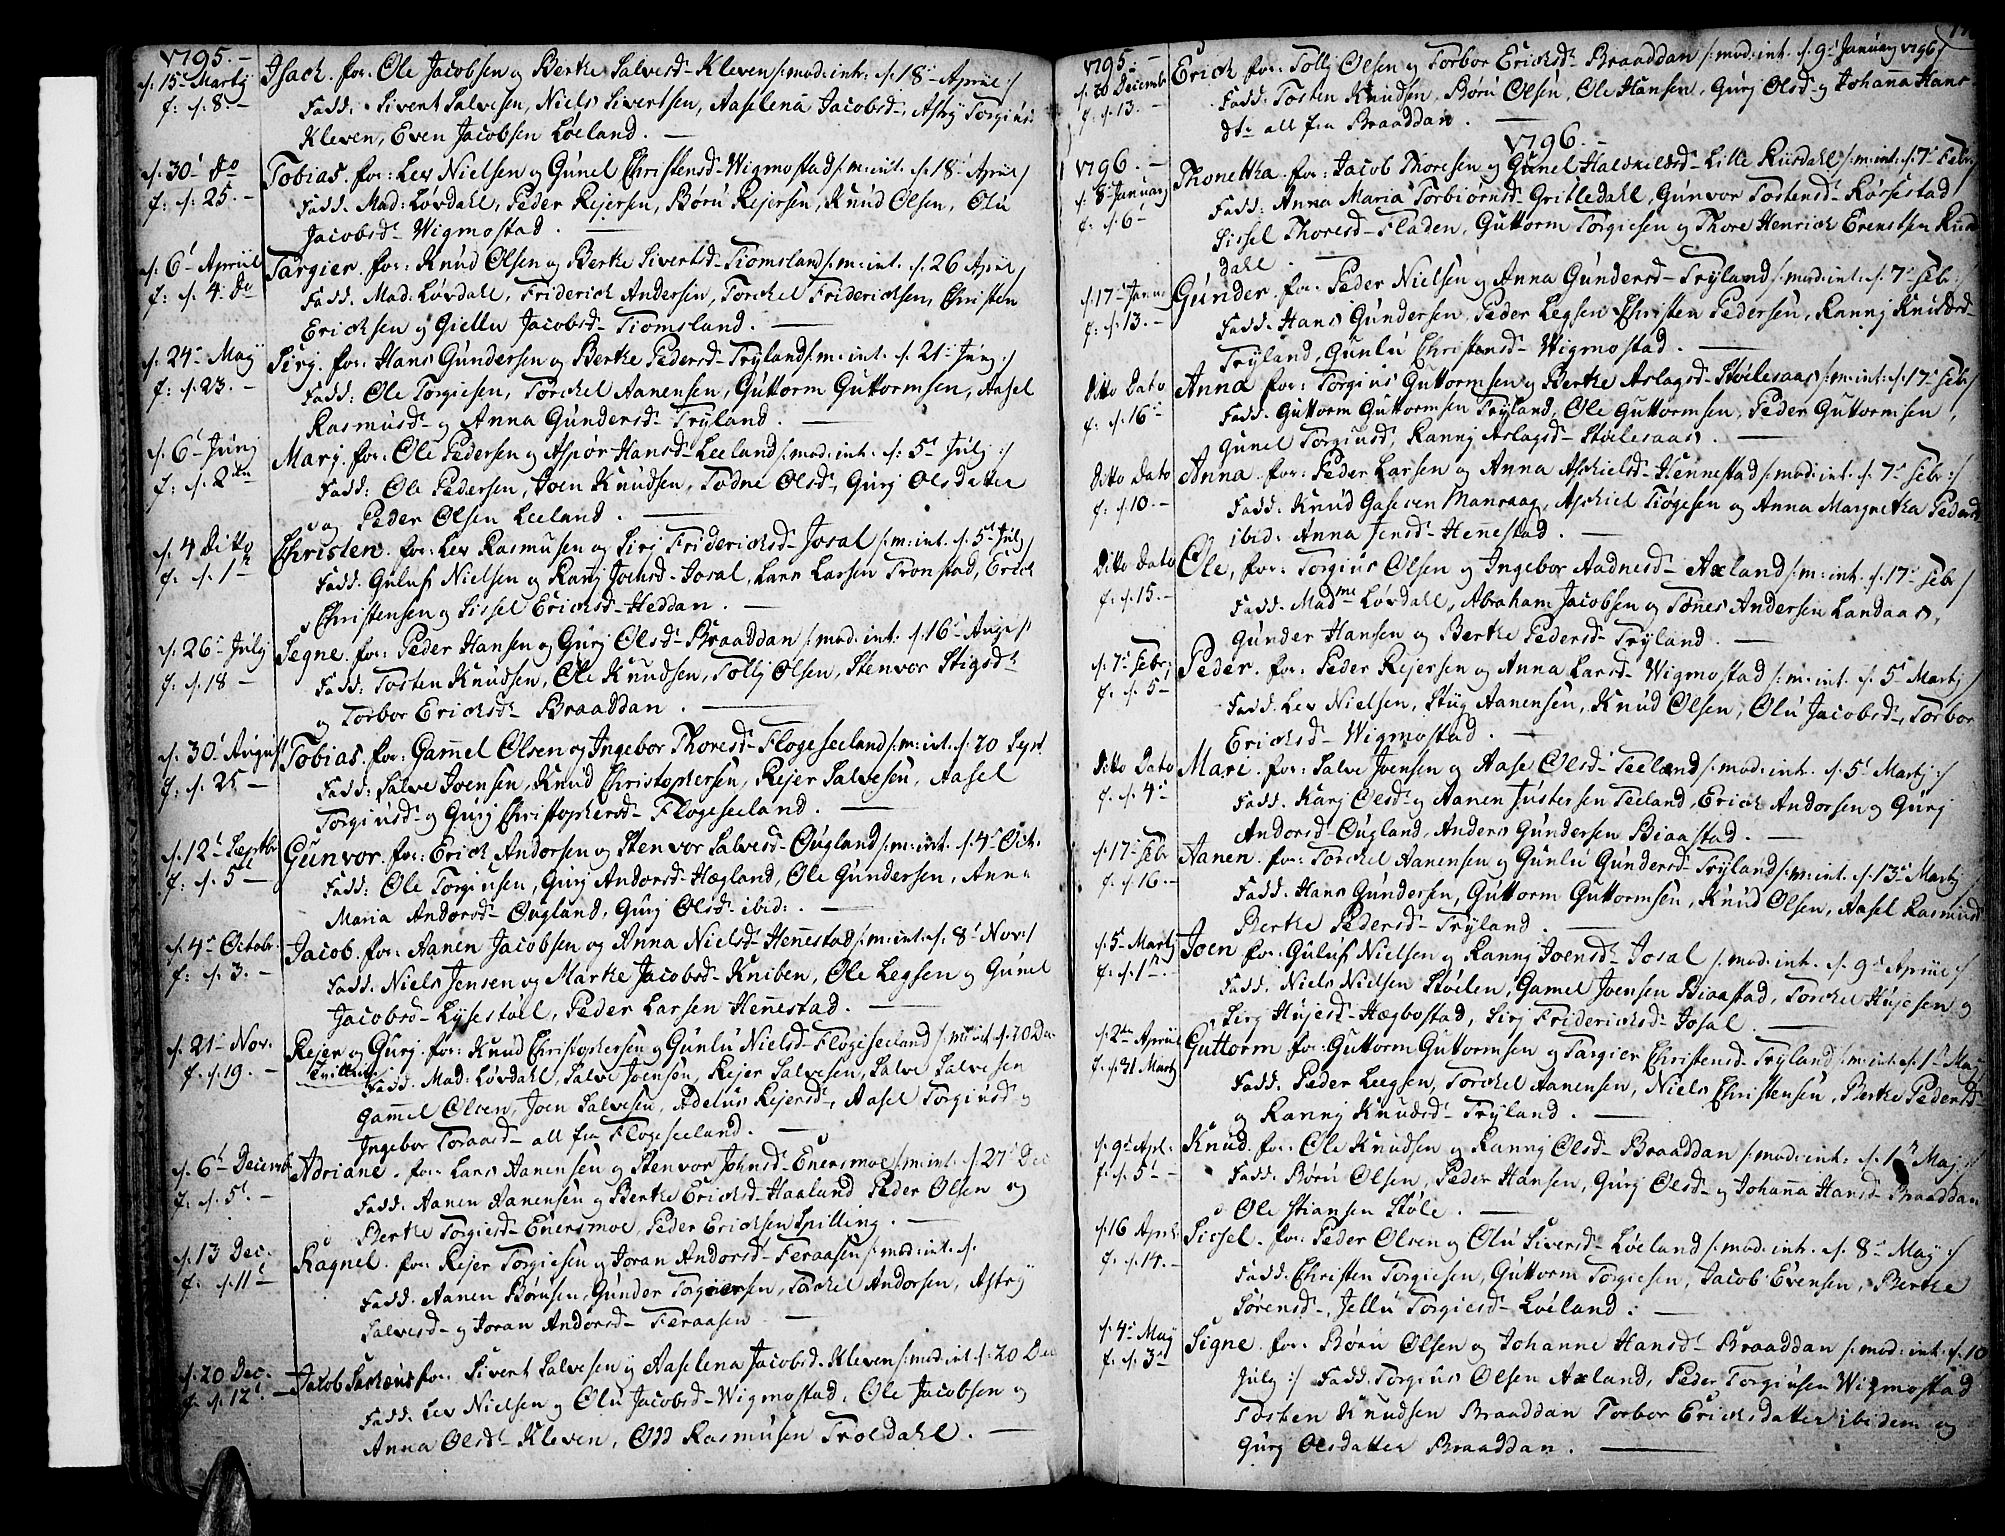 1795.
d: 15 Martij Isach. for: Ole Jacobsen og Berthe Salvesd- Kleven /:mod:int: d: 18 April:/
f: d: 8 Fadd: Sivert Salvesen, Niels Sivertsen, Aaselena Jacobsd-, Astrj Torgiusd
Kleven, Even Jacobsen Løeland.
d. 30 do Tobias. for: Lev Nielsen og Gunel Christensd- Wigmostad /:m:int. d. 18 April/
f: d: 25. Fadd. Mad: Løvdahl, Peder Rejersen, Børu Rejersen, Knud Olsen, Olu
Jacobsd- Wigmostad.
d. 6 April Targier. for: Knud Olsen og Berthe Sivertsd- Tiomsland /:m:int. d. 26 April/
f: d. 4 do Fadd. Mad: Løvdahl, Friderich Andersen, Torchel Friderichsen, Christen
Erichsen og Giellu Jacobsd- Tiomsland.
d. 24 Maij Sirj. for: Hans Gundersen og Berthe Pedersd- Trÿland /:m:int. d. 21 Junj:/
f: d. 23. Fadd: Ole Torgiesen, Torchel Aanensen, Guttorm Guttormsen, Aasel
Rasmusd- og Anna Gundersd- Trÿland.
d. 6 Junj Marj. for: Ole Pedersen og Aspør Hansd- Leeland /:mod:int. d: 5 Julj:/
f: d. 2den Fadd: Ole Pedersen, Joen Knudsen, Todne Olsd-, Gurj Olsdatter
og Peder Olsen Leeland.
d. 4 Ditto Christen. for: Lev Rasmusen og Sirj Friderichsd- Josal /:m:int. d. 5 Julj/
f. d. 1st Fadd. Guluf Nielsen og Ranj Jochsd- Josal, Lars Larsen Tronstad, Erich
Christensen og Sissel Erichsd- Heddan.
d. 26 Julj Segne. for: Peder Hansen og Gurj Olsd- Braaddan /:mod:int. d. 16 Aug:/
f: d. 18 Fadd: Tosten Knudsen, Ole Knudsen, Tollj Olsen, Stenvor Stigsd-
og Torbor Erichsd- Braaddan.
d. 30 August Tobias. for: Gamel Olsen og Ingebor Thoresd- Flogeseeland /:m:int. d. 20 Sept.
f: d. 25 Fadd: Salve Joensen, Knud Christophersen, Rejer Salvesen, Aasel
Torgiusd- og Gurj Christophersd- Flogeseeland.
d. 12 Septbr Gunvor. for: Erich Andorsen og Stenvor Salvesd- Øugland /:m:int. d. 4 Oct.
f: d. 5 Fadd: Ole Torgiusen, Gurj Andorsd- Hægland, Ole Gundersen, Anna
Maria Andorsd- Øugland, Gurj Olsd- ibid:.
d. 4 Octobr. Jacob. for: Aanen Jacobsen og Anna Nielsd- Henestad /:m:int: d. 8 Nov:/
f: d. 3. Fadd. Niels Jensen og Marthe Jacobsd- Kniben, Ole Legsen og Gunel
Jacobsd- Lÿsestøel, Peder Larsen Henestad.
d. 21 Nov. Rejer og Gurj. for: Knud Christophersen og Gunlu Nielsd- Flogeseeland /:m:int. d. 20 Dec
f. d. 19. Tvilling Fadd. Mad: Løvdahl, Salve Joensøn, Rejer Salvesen, Salve Salvesen
Gamel Olsen, Joen Salvesen, Adelus Rejersd-, Aasel Torgiusd- og
Ingebor Toraasd- all fra Flogeseeland.
d. 6 Decemb. Adriane. for: Lars Aanensen og Stenvor Johnsd- Enersmoe /:m:int. d. 27 Dec
f. d. 5. Fadd: Aanen Aanensen og Berthe Erichsd- Haaland Peder Olsen og
Berthe Torgiesd- Enersmoe, Peder Erichsen Spilling.
d. 13 Dec. Ragnel. for: Rejer Torgiesen og Joran Andorsd- Feraasen /:mod:int. d.
f: d. 11 Fadd. Aanen Børusen, Gunder Torgiersen, Torchel Andorsen, Astrÿ
Salvesd- og Joran Andorsd- Feraasen
d. 20 Dec. Jacob for: Sivert Salvesen og Aaselena Jacobsd- Kleven /:mod:int d. 20 Dec
f. d. 12. Fadd. Lev Nielsen og Olu Jacobsd- Wigmostad, Ole Jacobsen og
Anna Olsd- Kleven, Odd Rasmusen Troldahl.
1795.
d. 20 Decemb Erich for: Tollj Olsen og Torbor Erichsd- Braaddan /:mod:int. d. 9 Januarj 1796/
f. d. 13. Fadd: Tosten Knudsen, Børu Olsen, Ole Hansen, Gurj Olsd- og Johana Hans
dt- all fra Braaddan.
1796.
1796.
d. 8 Januarj Thonetha. for: Jacob Thoresen og Gunel Halskildsd- Lille Rusdahl /:m:int: d. 7 Febr:/
f: d. 6 Fadd: Anna Maria Torbiørnsd- Gritledahl, Gunvor Tostensd- Rørsestad
Sissel Thoresd- Fladen, Guttorm Torgiesen og Thore Henrich Erenstsen Rus
dahl.
d. 17 Janu Gunder. for: Peder Nielsen og Anna Gundersd- Trÿland /:mod:int: d. 7 Febr:
f: d. 13. Fadd. Hans Gundersen, Peder Legsen, Christen Pedersen, Rannj Knudsd-
Trÿland, Gunlu Christensd- Wigmostad.
Ditto Dato Anna for: Torgius Guttormsen og Berthe Aslagsd- Støelesaas /:m:int: d. 17 Febr/
f: d. 16 Fadd. Guttorm Guttormsen Trÿland, Ole Guttormsen, Peder Guttormsen,
Gunel Torgiusd, Rannj Aslagsd- Støelesaas.
Ditto Dato Anna. for: Peder Larsen og Anna Aschielsd- Hennestad /:mod:int. d. 7 Febr:/
f: d. 10. Fadd: Knud Manraag, Aschiel Tiøgesen og Anna Margretha Pedersd
ibid: Anna Jensd- Henestad.
Ditto Dato Ole, for: Torgius Olsen og Ingebor Aadnesd- Axland /:m:int. d. 17 Febr/
f. d. 15. Fadd. Madme Løvdahl, Abraham Jacobsen og Tønes Andersen Landaas,
Gunder Hansen og Berthe Pedersd- Trÿland.
d. 7 Febr: Peder. for: Peder Rejersen og Anna Larsd- Wigmostad /:m:int. d. 5 Martj/
f. d. 5 Fadd. Lev Nielsen, Stiig Aanensen, Knud Olsen, Olu Jacobsd-, Torbor
Erichsd- Wigmostad.
Ditto Dato Mari. for: Salve Joensen og Aase Olsd- Teeland /:mod:int. d. 5 Martj:/
f. d. 4 Fadd. Karj Olsd- og Aanen Justersen Teeland, Erich Andorsen og Gurj
Andorsd- Øugland, Anders Gundersen Biaastad.
d. 17 Febr Aanen. for: Torchel Aanensen og Gunlu Gundersd- Trÿland /:m:int. d. 13 Martj/
f. d. 16. Fadd. Hans Gundersen, Guttorm Guttormsen, Knud Olsen, Aasel Rasmusd
Berthe Pedersd- Trÿland.
d. 5 Martj Joen for: Guluf Nielsen og Rannj Joensd- Josal /:mod:int. d. 9 Aprill:/
f: d. 1st. Fadd. Niels Nielsen Støelen, Gamel Joensen Biaastad, Torchel Hujesen og
Sirj Hujesd- Hægbostad, Sirj Friderichsd- Josal.
d. 2den April Guttorm for: Guttorm Guttormsen og Targier Christensd- Trÿland /:m:int. d. 1st Maj
f. d. 31 Martj Fadd. Peder Leegsen, Torchel Aanensen, Niels Christensen, Berthe Pedersd-
og Rannj Knudsd- Trÿland.
d. 9 Apl. Knud. for: Ole Knudsen og Rannj Olsd- Braaddan /:mod:int: d. 1st Maj:/
f: d. 5 Fadd: Børu Olsen, Peder Hansen, Gurj Olsd- og Johana Hansd- Braaddan
Ole Stiansen Støle.
d. 16 Apr. Sissel. for: Peder Olsen og Olu Siversd- Løeland /:mod:int. d. 8 Maij:/
f: d. 14. Fadd. Christen Torgiesen, Guttorm Torgiesen, Jacob Evensen, Berthe
Sørensd-, Jellu Torgiesd- Løeland.
d. 4 Maij Signe. for: Børu Olsen og Johanne Hansd- Braaddan /:mod:int: d. 10
f: d. 3 Julj:/ Fadd. Torgius Olsen Axland, Peder Torgiusen Wigmostad
Tosten Knudsen Braaddan Torbor Erichsdatter ibidem og
Gurj Olsdatter Braaddan.